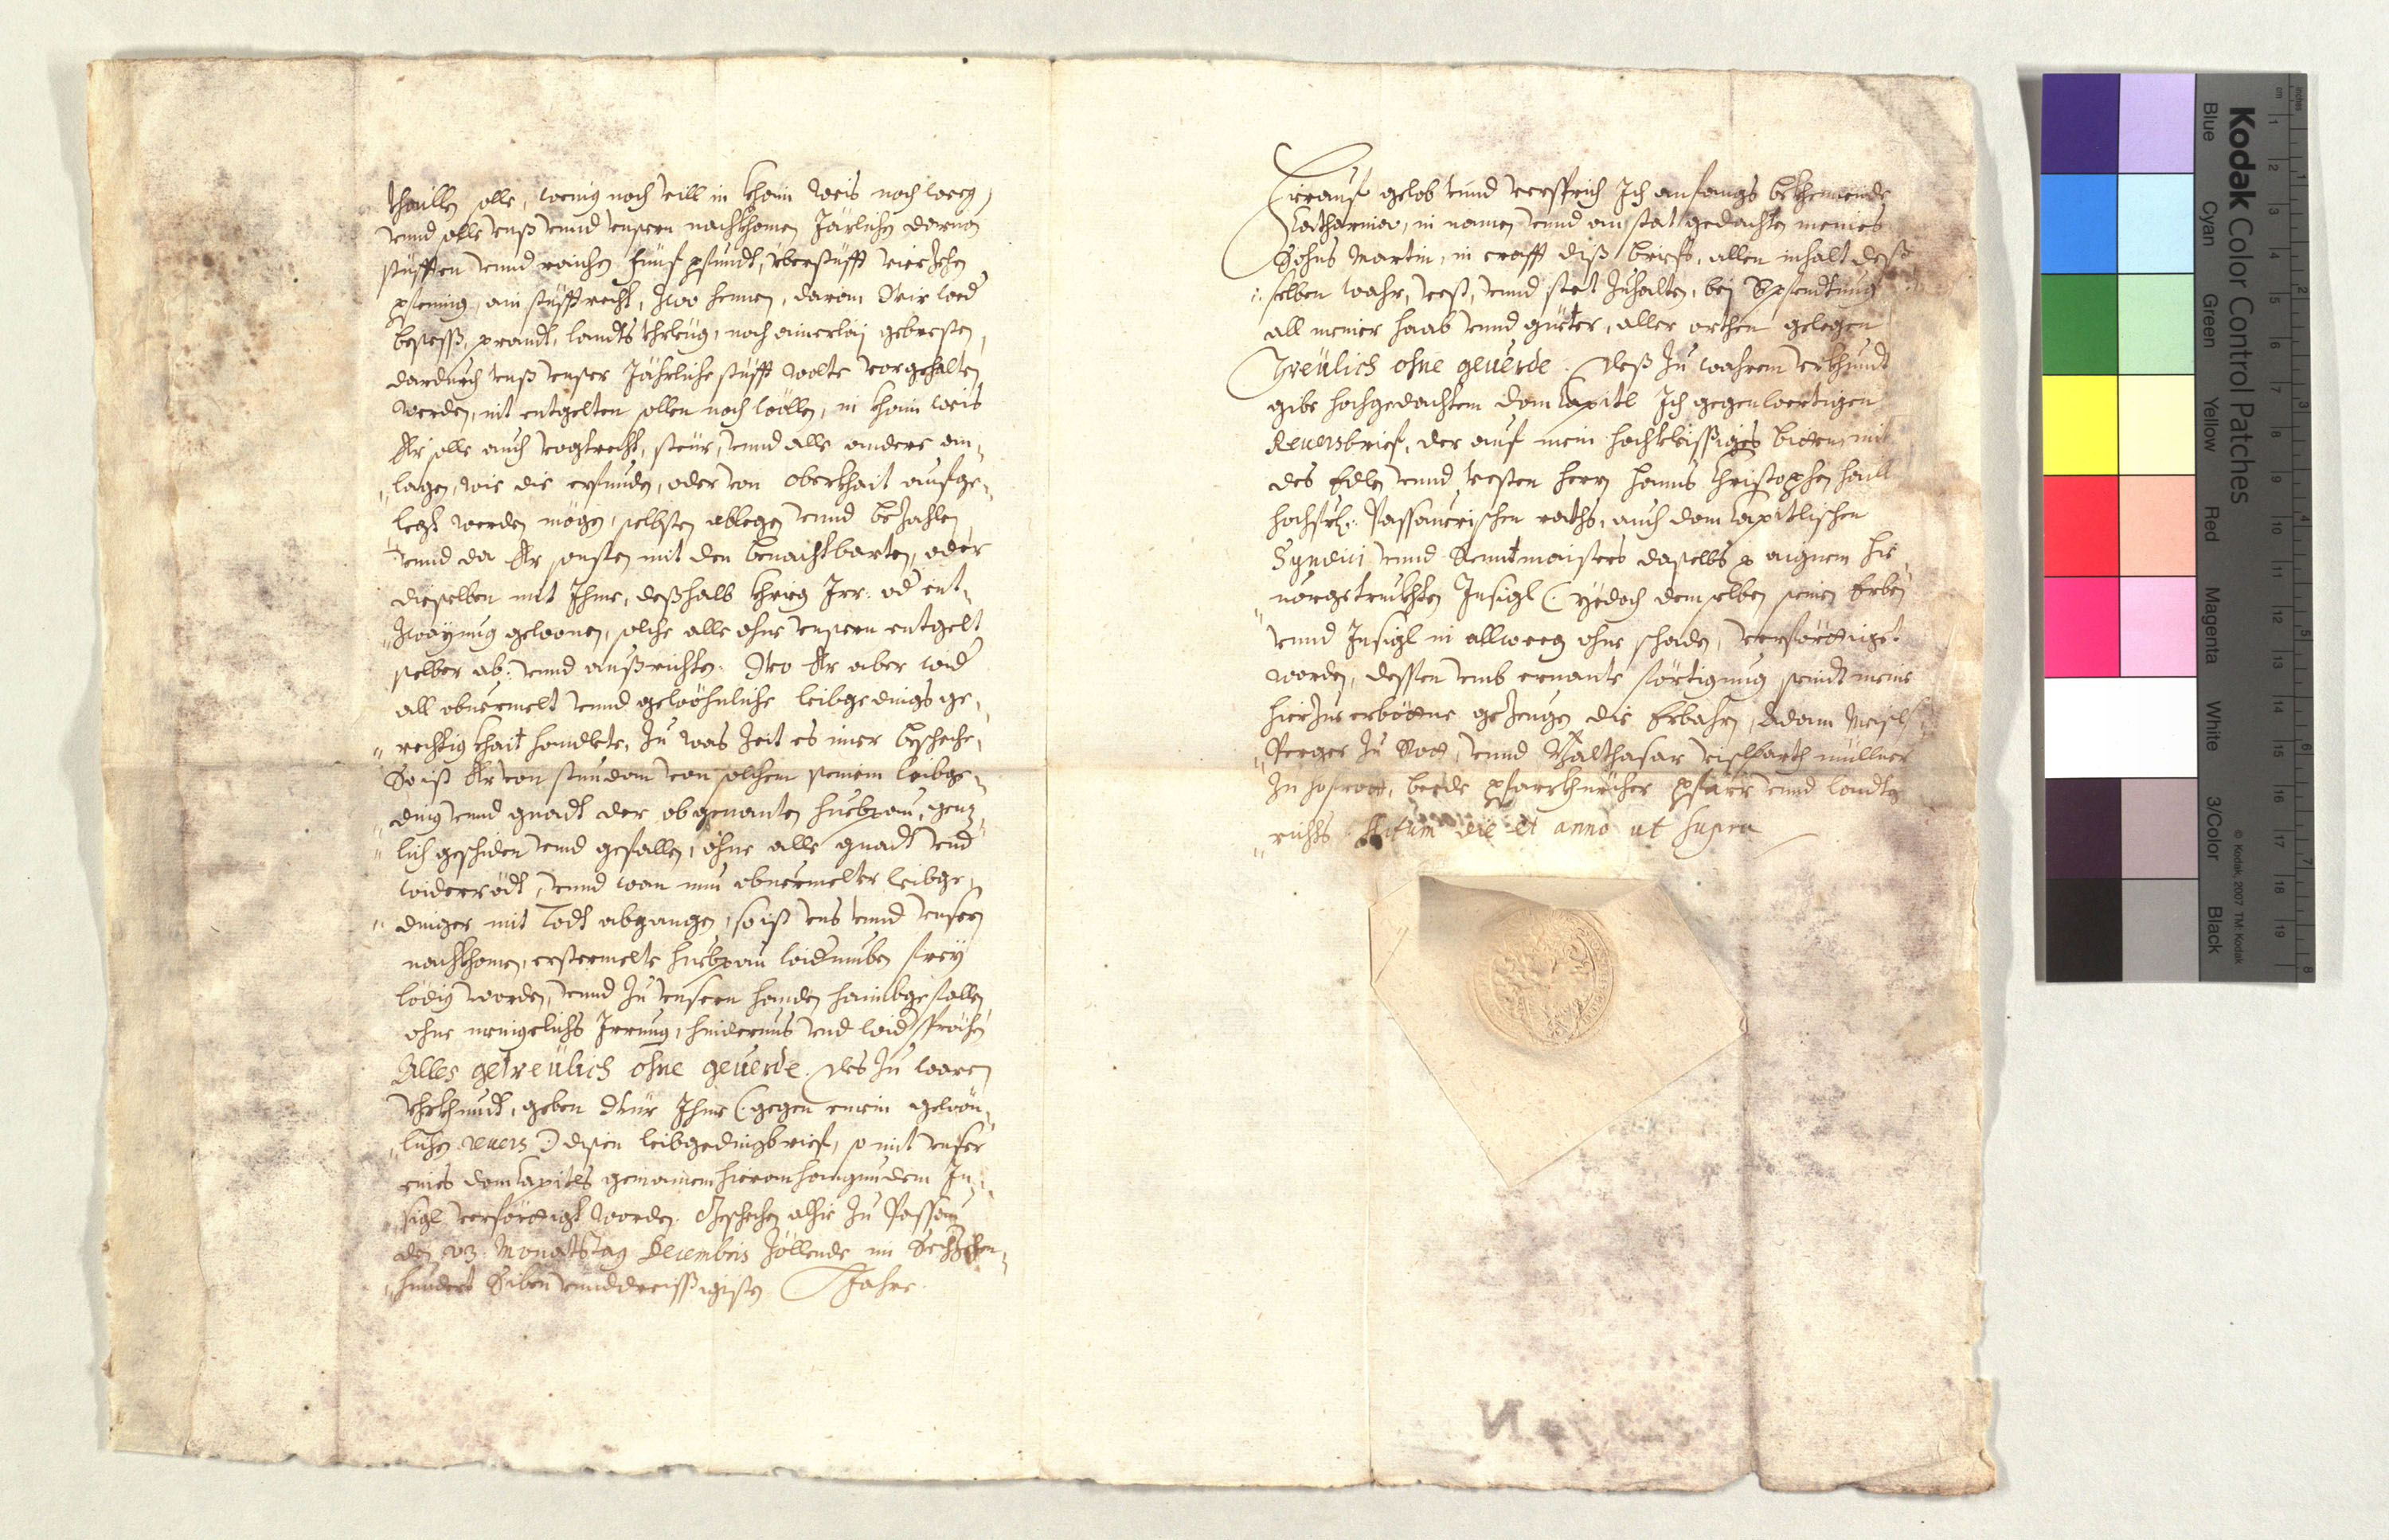 thaillen solle, wenig noch vill in khain weis noch weeg,
vnnd solle vnß vnnd vnsern nachkhomen Järlichen daruon
stüfften vnnd raichen fünf pfundt, vberstüfft vierzehen
pfening, ain stüfftrecht, zwo hennen, darinn Wir wed
besesß, prandt, landts khrieg, noch ainerlaj gebresten,
dardurch vnß vnser Jährliche stüfft wolte vorgehalten
werden, nit entgelten sollen noch wöllen, in khain weis
Er solle auch vogtrecht, steur, vnnd alle andere an„
„lagen, wie die erfunden, oder von Oberkhait aufge„
legt werden mögen, selbsten ablegen vnnd bezahlen
vnnd da Er sonsten mit den benachtbarten, oder
dieselben mit Ihme, deßhalb khrieg Irr: od ent„
„zwayung gewonen, solche alle ohne vnsern entgelt
selber ab: vnnd außrichten. Wo Er aber wid
all obuermelt vnnd gewöhnliche leibgedings ge„
„rechtigkhait handlete, zu was zeit es imer beschehe,
So ist Er von stundan von solchem seinem leibge„
„ding vnnd gnadt der obgenanten huebpau, genz„
„lich geschiden vnnd gefallen, ohne alle gnadt vnd
widerrödt, vnnd wan nun obuermelter leibge„
„dinger mit todt abgangen, so ist vns vnnd vnsern
nachkhomen, erstermelte huebpau widerumben frey
lödig worden, vnnd zu vnsern handen haimbgefallen
ohne menigelichs Irrung, hindernus vnd widsprechen
Alles getreülich ohne geuerde. Des zu waren
Vhrkhundt, geben Wür Ihme (: gegen einem gewön„
„lichen reuers :) disen leibgedingbrief, so mit vnser
eines domCapitls gemainem hieran hangundem In„
„sigl verförttigt worden. Geschehen alhie zu Passau
den 23. Monatstag Decembris zöllende im Sechzehen„
„hundert Siben vnnddreissigisten Jahre.
Hierauf gelob vnnd versprich Ich anfangs bekhennende
Catharina, in namen vnnd an stat gedachten meines
Sohns Martin, in crafft diß briefs, allen inhalt deß„
„selben wahr, vesst, vnnd stät zuhalten, bej Verpfendtung
all meiner haab vnnd güeter, aller orthen gelegen
Threülich ohne geuerde. Deß zu wahrem vrkhundt
gibe hochgedachtem dom Capitl Ich gegenwertigen
Reuersbrief, der auf mein hochfleissiges bitten, mit
des Edlen vnnd vesten herrn Hanns Christophen
hochfrl: Passauerischen raths, auch dom Capitlischen
Syndici vnnd Renntmaisters daselbs aignem hie„
„uorgetruckhten Insigl (: yedoch demselben seinen Erben
vnnd Insigl in allweeg ohne schaden, verförttiget
worden, dessen vmb ernante förtigung seindt meine
hierzue erböttne gezeugen die Erbahrn, Adam
„Perger zu Rott, vnnd Balthasar müllner
zu Hofrott, beede pfarrkhürcher Pfarr vnnd landtg„
„richts. Actum die et anno ut supra